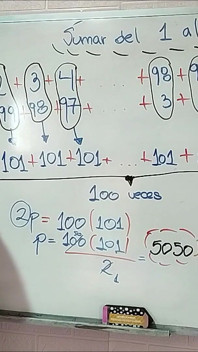 Sumar del 1 al
2 + 3 + 4 + ... + 98 + 9
99 + 98 + 97 + ... + 3 +
101 + 101 + 101 + ... + 101 +
100 veces
2p = 100 (101)
p = 100 (101) / 2 = 5050